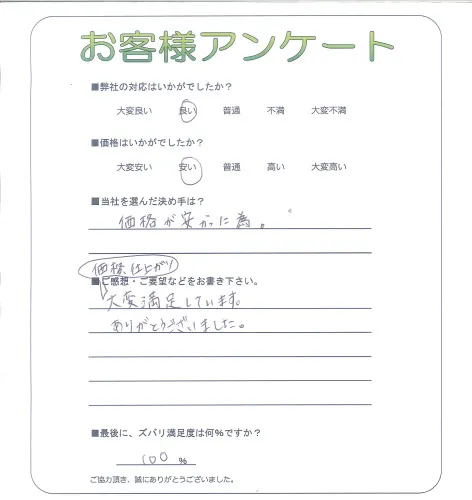 お客様アンケート
■弊社の対応はいかがでしたか？
大変良い 良い 普通 不満 大変不満
■価格はいかがでしたか？
大変安い 安い 普通 高い 大変高い
■当社を選んだ決め手は？
価格が安かった為。
価格、仕上がり
■ご感想・ご要望などをお書き下さい。
大変満足しています。
ありがとうございました。
■最後に、ズバリ満足度は何%ですか？
100 %
ご協力頂き、誠にありがとうございました。